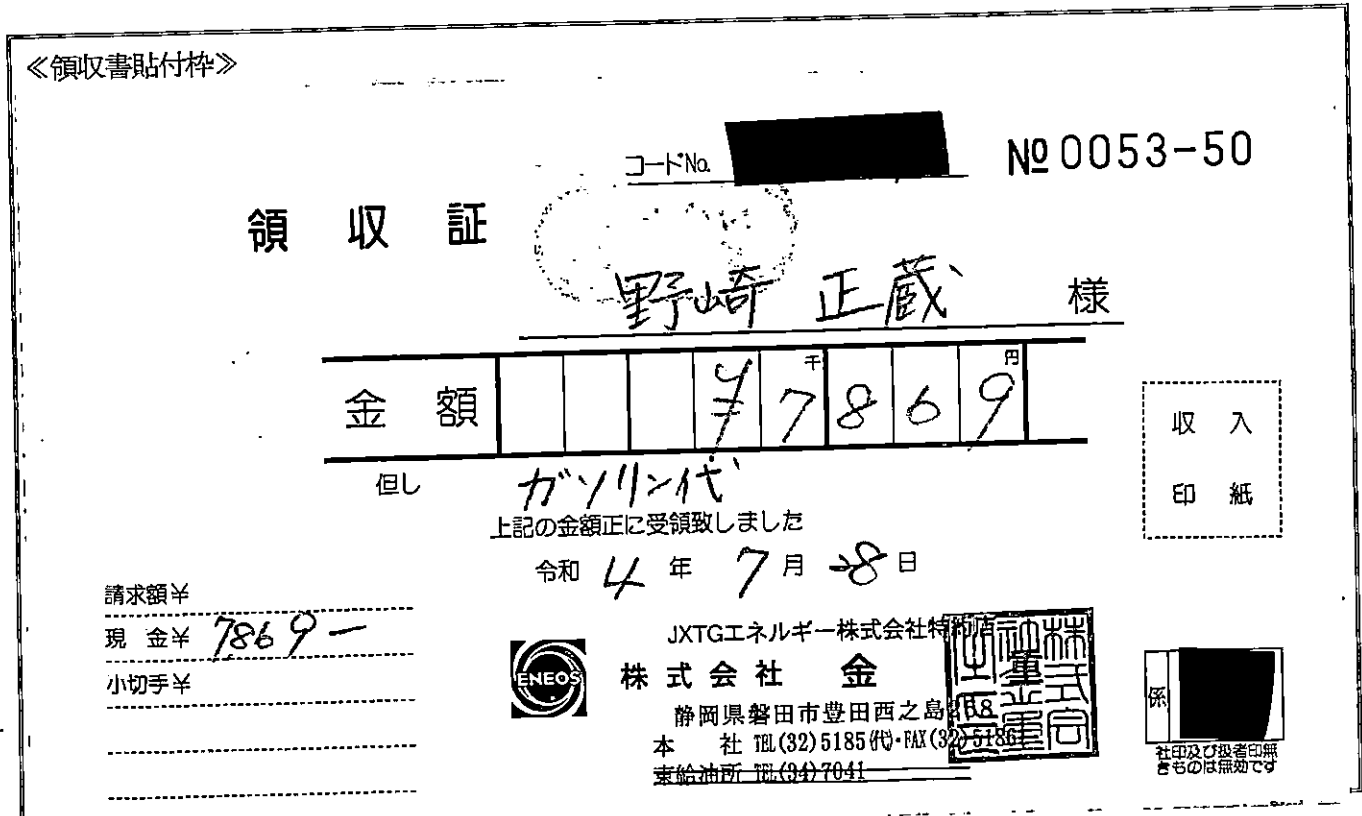 ≪領収書貼付枠≫
コードNo.
№0053-50
領収証
野崎 正蔵 様
金額 ¥7869
千 円
但し ガソリン代
上記の金額正に受領致しました
令和 4 年 7 月 28 日
請求額¥
現 金¥ 7869-
小切手¥
収入
印紙
JXTGエネルギー株式会社特約店
ENEOS
株式会社 金
静岡県磐田市豊田西之島
本 社 TEL(32)5185(代)・FAX(32)5186
東給油所 TEL(34)7041
係
社印及び扱者印無
きものは無効です